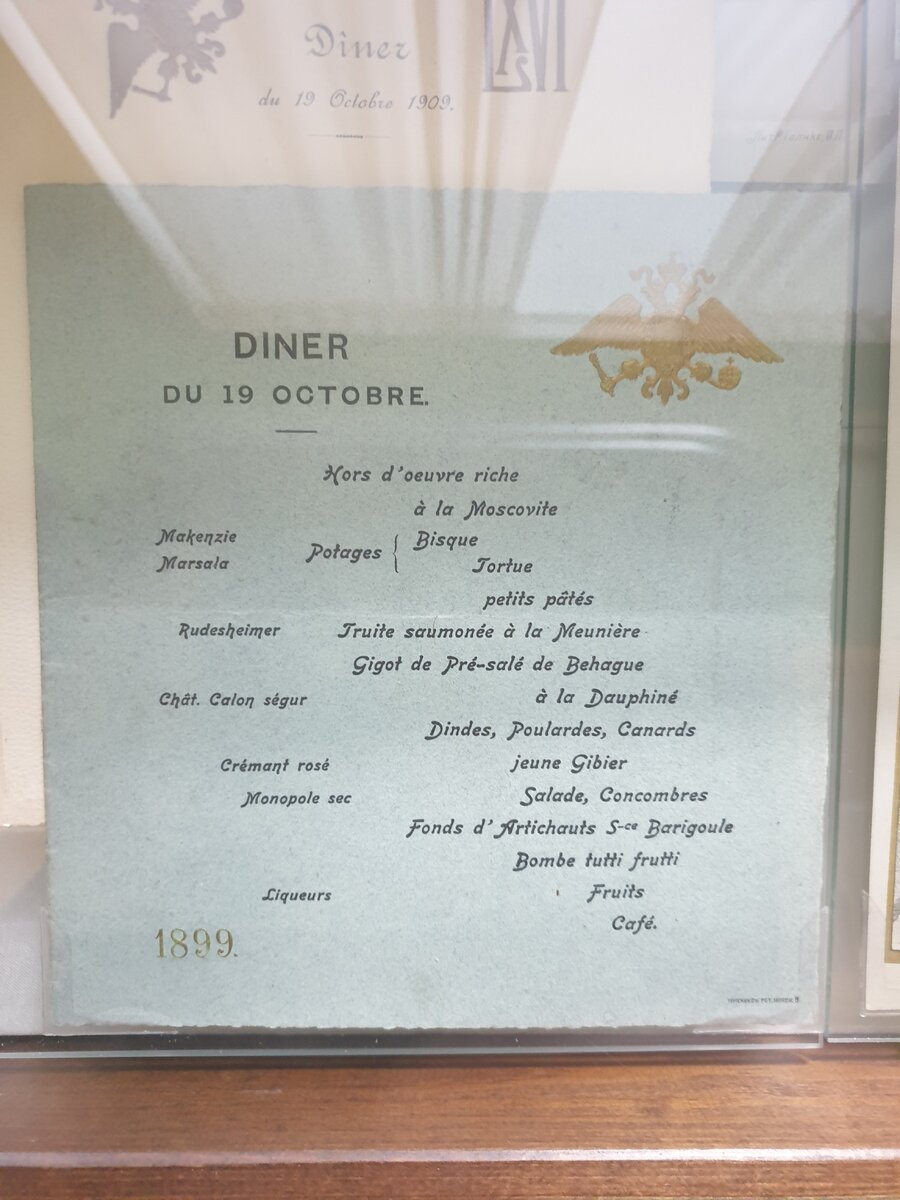 Dîner
du 19 Octobre 1909.
DINER
DU 19 OCTOBRE.
Hors d'oeuvre riche
à la Moscovite
Makenzie
Marsala
Potages { Bisque
Tortue
petits pâtés
Rudesheimer Truite saumonée à la Meunière
Gigot de Pré-salé de Behague
Chât. Calon ségur à la Dauphiné
Dindes, Poulardes, Canards
Crémant rosé jeune Gibier
Monopole sec Salade, Concombres
Fonds d'Artichauts S-ce Barigoule
Bombe tutti frutti
Liqueurs Fruits
Café.
1899.